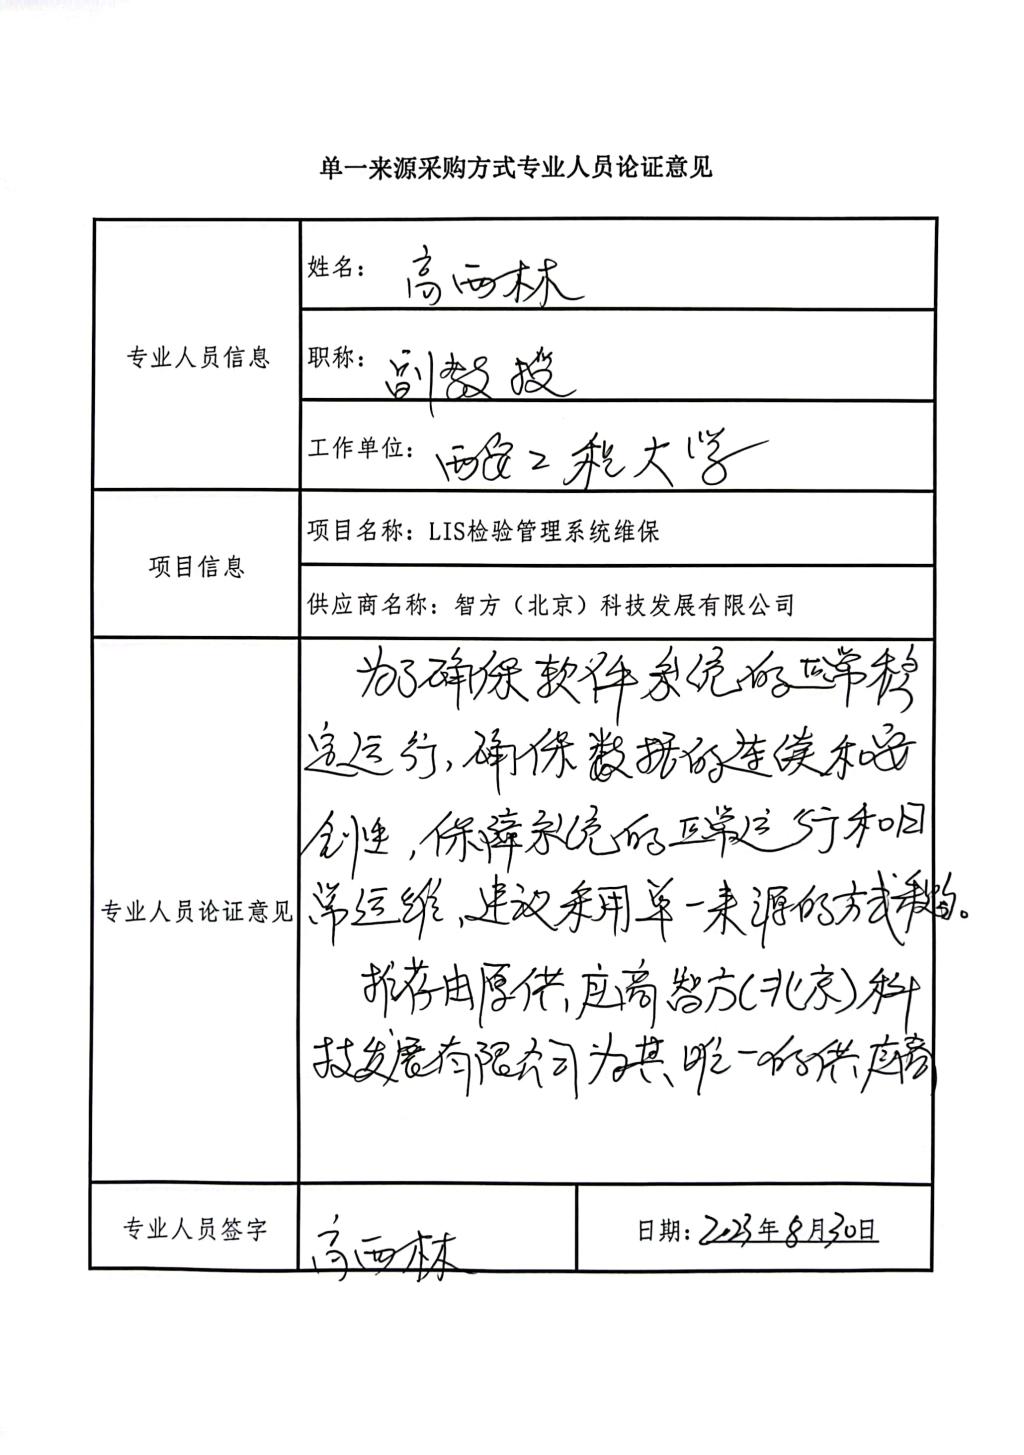 单一来源采购方式专业人员论证意见
专业人员信息
姓名：高西林
职称：副教授
工作单位：西安工程大学
项目信息
项目名称：LIS检验管理系统维保
供应商名称：智方（北京）科技发展有限公司
专业人员论证意见
为了确保软件系统的正常稳
定运行，确保数据的连续和安
全性，保障系统的正常运行和日
常运维，建议采用单一来源的方式采购。
推荐由原供应商智方（北京）科
技发展有限公司为其唯一的供应商
专业人员签字
高西林
日期：2023年8月30日